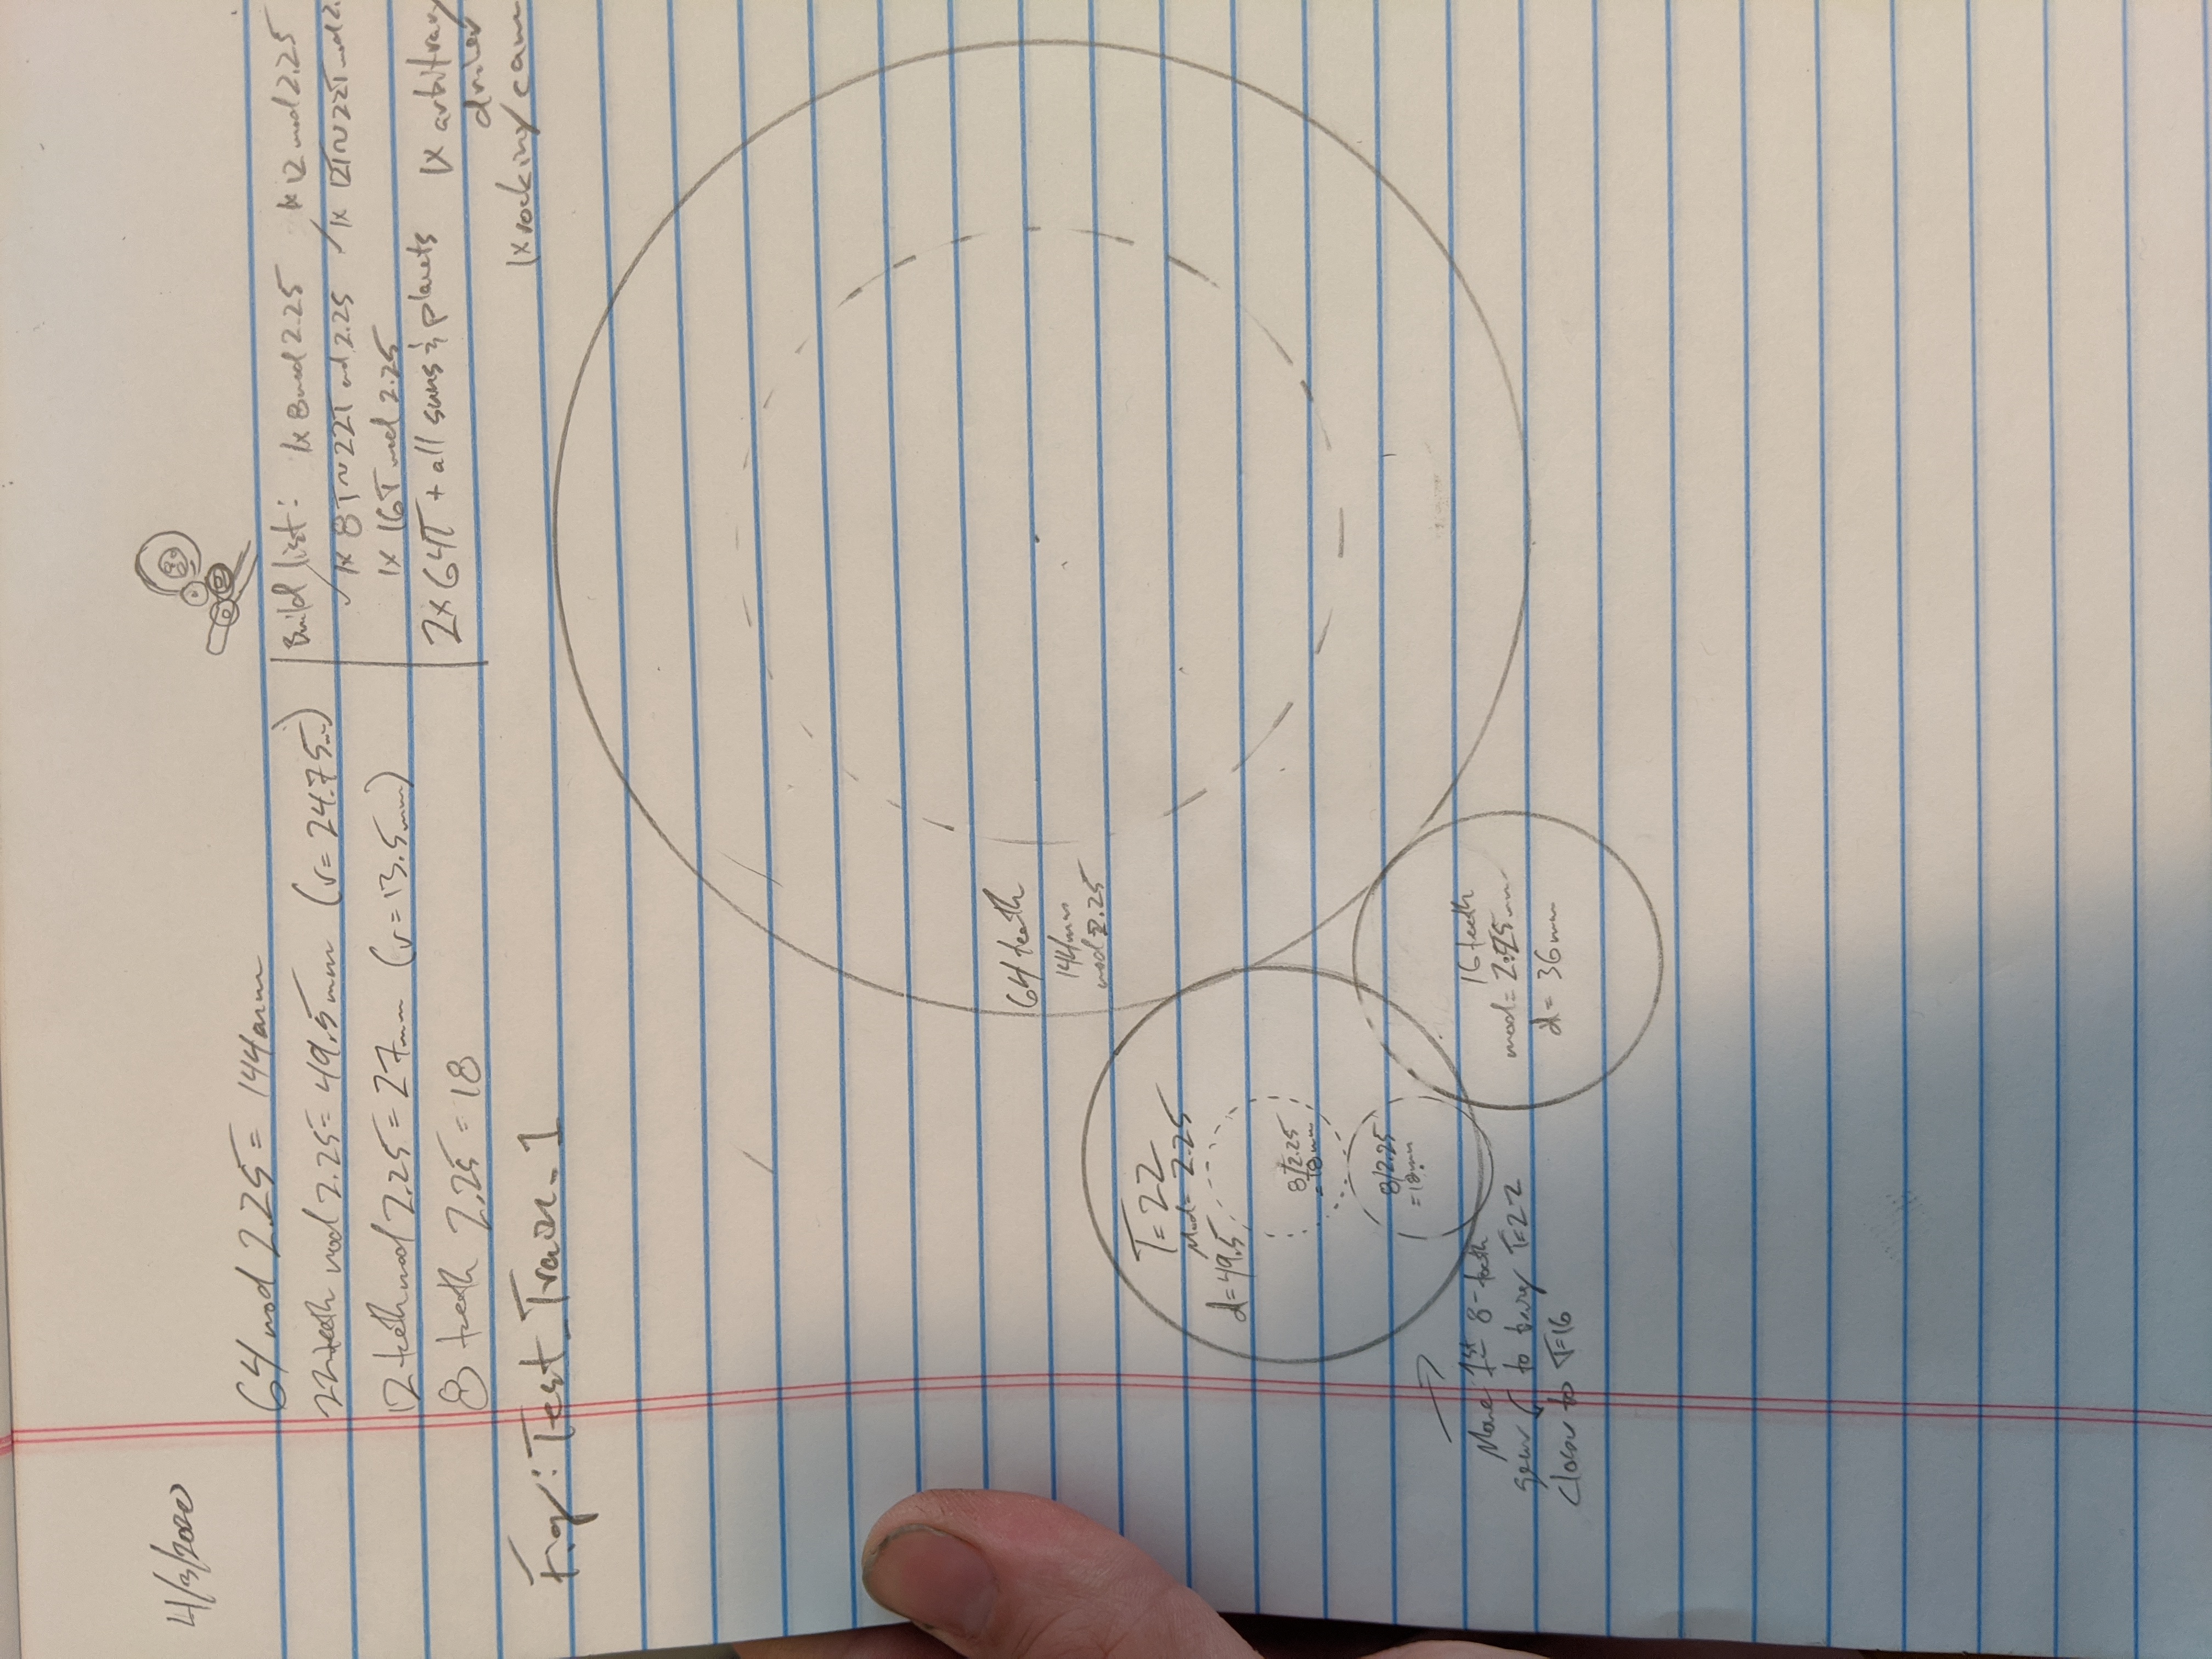 4/3/2020
64 mod 2.25 = 144mm
22 teeth mod 2.25 = 49.5mm (r = 24.75mm)
12 teeth mod 2.25 = 27mm (r = 13.5mm)
8 teeth 2.25 = 18
Build list: 1x 8 mod 2.25 1x 12 mod 2.25
✓ 1x 8T~22T mod 2.25 ✓ 1x 12T~22T mod 2.
1x 16T mod 2.25
2x 64T + all suns & planets 1x arbitrary
driver
1x rocking cam
Fig: Test_Train_1
64 teeth
144mm
mod 2.25
T=22
Mod= 2.25
d=49.5
8/2.25
=18mm
8/2.25
=18mm
Move 1st 8-tooth
gear to bring T=22
closer to T=16
16 teeth
mod= 2.25mm
d= 36mm